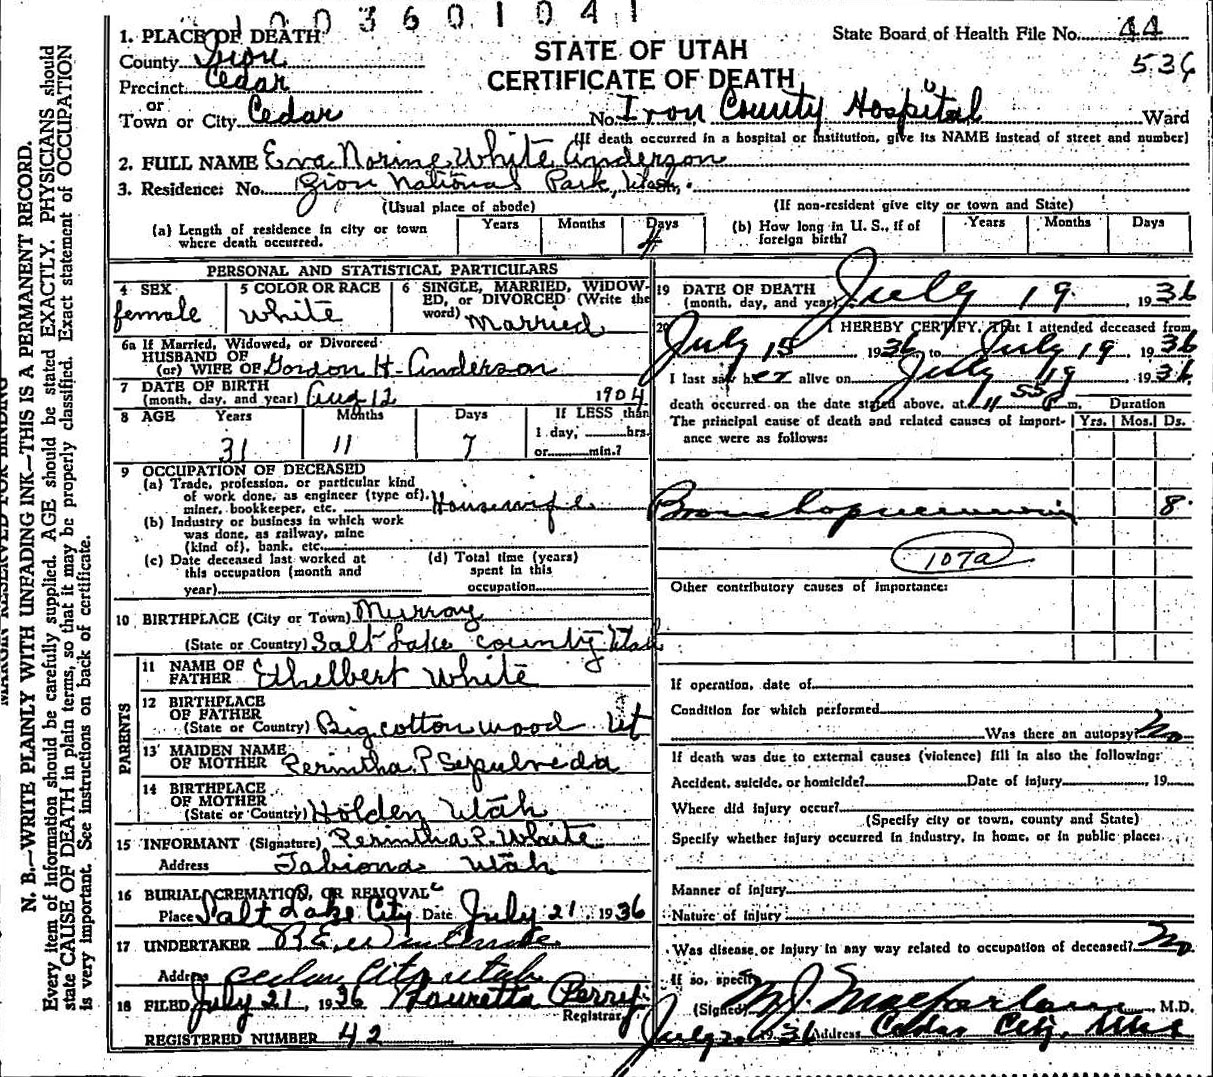 1003601041
State Board of Health File No. 44
536
STATE OF UTAH
CERTIFICATE OF DEATH
1. PLACE OF DEATH
County Iron
Precinct Cedar
or
Town or City Cedar No. Iron County Hospital Ward
(If death occurred in a hospital or institution, give its NAME instead of street and number)
2. FULL NAME Eva Norine White Anderson
3. Residence: No. Zion National Park, Utah.
(Usual place of abode) (If non-resident give city or town and State)
(a) Length of residence in city or town where death occurred. Years Months Days 4
(b) How long in U. S., if of foreign birth? Years Months Days
PERSONAL AND STATISTICAL PARTICULARS
4 SEX female
5 COLOR OR RACE White
6 SINGLE, MARRIED, WIDOWED, or DIVORCED (Write the word) Married
6a If Married, Widowed, or Divorced
HUSBAND OF
(or) WIFE OF Gordon H. Anderson
7 DATE OF BIRTH
(month, day, and year) Aug 12 1904
8 AGE Years Months Days If LESS than
31 11 7 1 day, hrs.
or min.?
9 OCCUPATION OF DECEASED
(a) Trade, profession, or particular kind
of work done, as engineer (type of),
miner, bookkeeper, etc. Housewife
(b) Industry or business in which work
was done, as railway, mine
(kind of), bank, etc.
(c) Date deceased last worked at
this occupation (month and
year)
(d) Total time (years)
spent in this
occupation
10 BIRTHPLACE (City or Town) Murray
(State or Country) Salt Lake County Utah
PARENTS
11 NAME OF
FATHER Ethelbert White
12 BIRTHPLACE
OF FATHER
(State or Country) Big cottonwood Ut
13 MAIDEN NAME
OF MOTHER Perintha P Sepulveda
14 BIRTHPLACE
OF MOTHER
(State or Country) Holden Utah
15 INFORMANT (Signature) Perintha P. White
Address Tabiona Utah
16 BURIAL, CREMATION, OR REMOVAL
Place Salt Lake City Date July 21, 1936
17 UNDERTAKER
Address Cedar City Utah
18 FILED July 21, 1936 Lauretta Perry
Registrar
REGISTERED NUMBER 42
19 DATE OF DEATH
(month, day, and year) July 19, 1936
20 I HEREBY CERTIFY, That I attended deceased from
July 15 1936 to July 19, 1936
I last saw her alive on July 19 1936
death occurred on the date stated above, at 11 55 P m. Duration
The principal cause of death and related causes of importance were as follows: Yrs. Mos. Ds.
Bronchopneumonia 8
107a
Other contributory causes of importance:
If operation, date of
Condition for which performed
Was there an autopsy? No
If death was due to external causes (violence) fill in also the following:
Accident, suicide, or homicide? Date of injury 19
Where did injury occur?
(Specify city or town, county and State)
Specify whether injury occurred in industry, in home, or in public place:
Manner of injury
Nature of injury
Was disease or injury in any way related to occupation of deceased? No
If so, specify
(Signed) M. J. Macfarlane, M.D.
July 1936 Address Cedar City, Utah
MARGIN RESERVED FOR BINDING
N. B.—WRITE PLAINLY WITH UNFADING INK—THIS IS A PERMANENT RECORD.
Every item of information should be carefully supplied. AGE should be stated EXACTLY. PHYSICIANS should
state CAUSE OF DEATH in plain terms, so that it may be properly classified. Exact statement of OCCUPATION
is very important. See instructions on back of certificate.